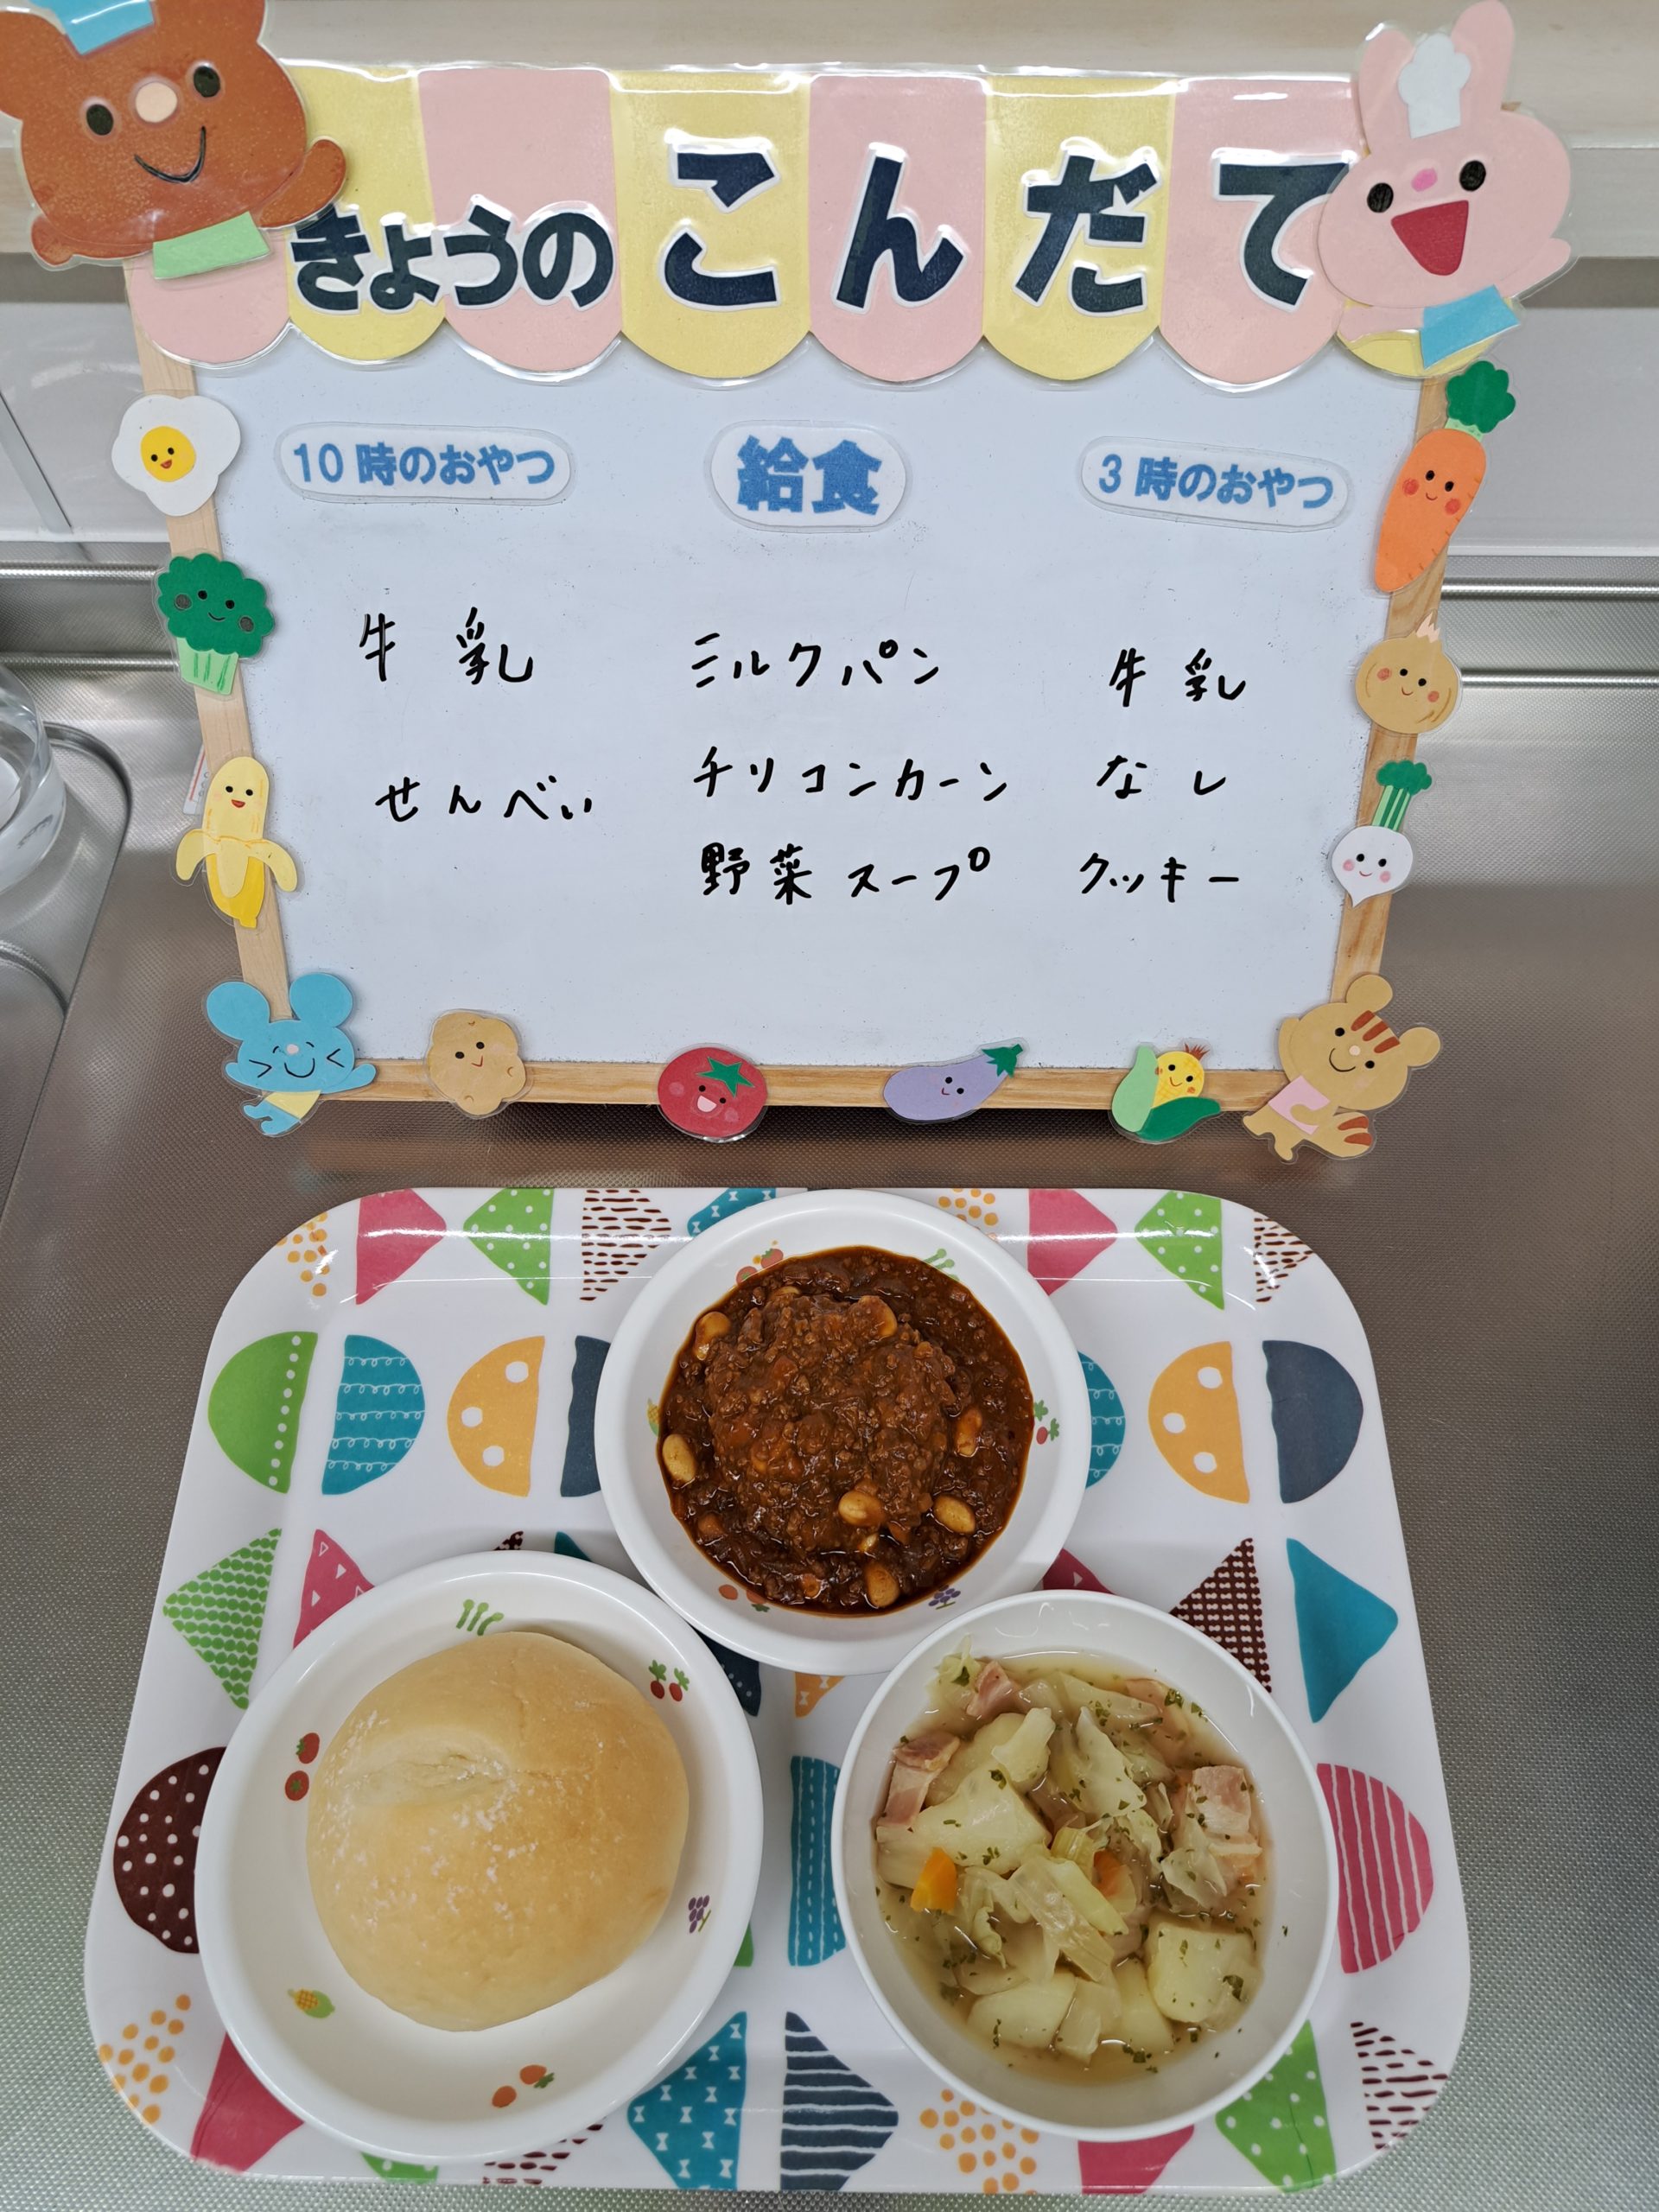 きょうの こんだて
10時のおやつ
牛乳
せんべい
給食
ミルクパン
チリコンカーン
野菜スープ
3時のおやつ
牛乳
なし
クッキー